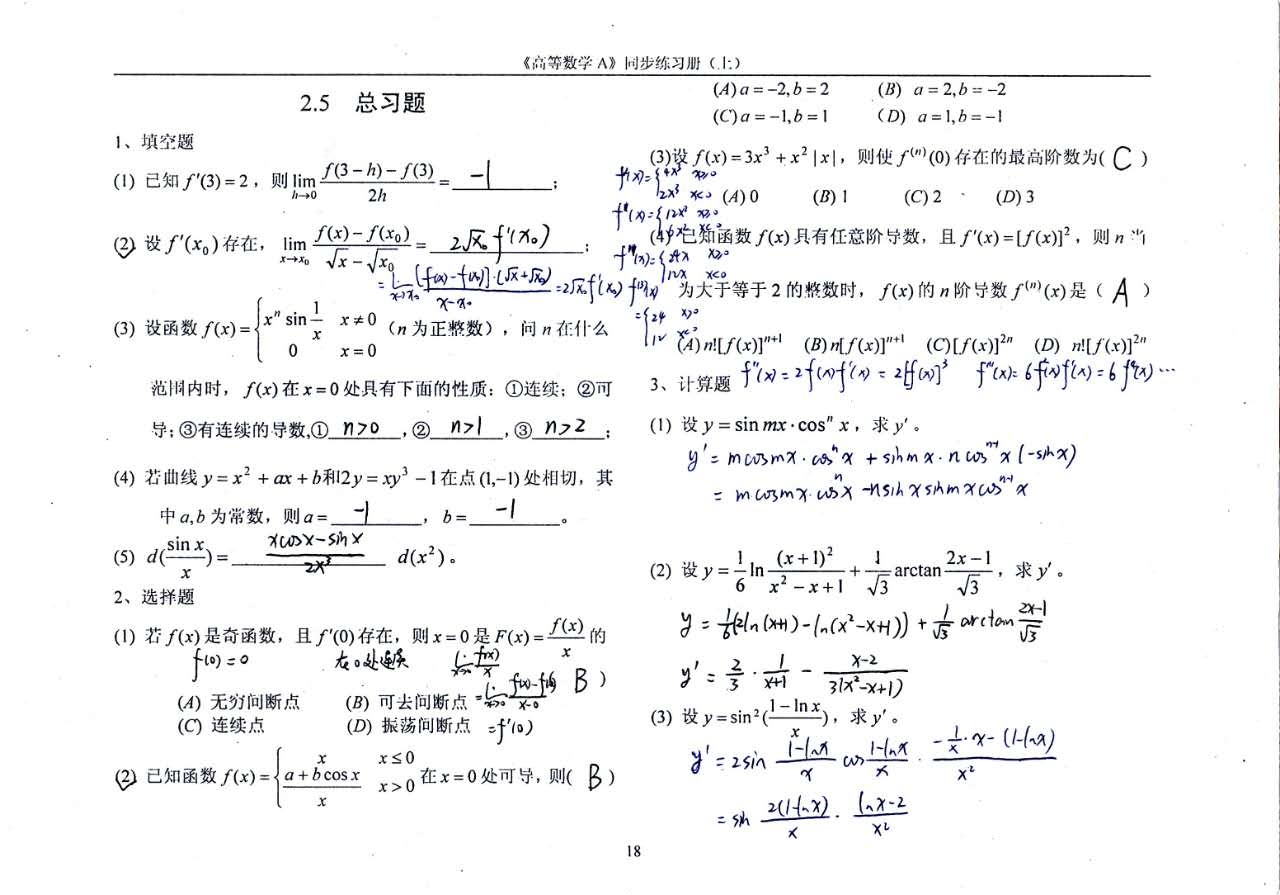 《高等数学 A》同步练习册（上）
2.5 总习题
1、填空题
(1) 已知 f′(3) = 2，则 lim_{h→0} \frac{f(3-h)-f(3)}{2h} = -1 ;
(2) 设 f′(x₀) 存在， lim_{x→x₀} \frac{f(x)-f(x₀)}{√x-√x₀} = 2√x₀ f′(x₀) ;
= lim_{x→x₀} \frac{[f(x)-f(x₀)]·(√x+√x₀)}{x-x₀} = 2√x₀ f′(x₀)
(3) 设函数 f(x) = { xⁿ sin \frac{1}{x} x≠0
0 x=0 （n 为正整数），问 n 在什么
范围内时， f(x) 在 x=0 处具有下面的性质：①连续；②可
导；③有连续的导数,① n>0 ,② n>1 ,③ n>2 ;
(4) 若曲线 y = x² + ax + b和2y = xy³ −1在点 (1,−1) 处相切，其
中 a,b 为常数，则 a = -1 ， b = -1 。
(5) d(\frac{sin x}{x}) = \frac{xcosx-sinx}{2x³} d(x²) 。
2、选择题
(1) 若 f(x) 是奇函数，且 f′(0) 存在，则 x=0 是 F(x) = \frac{f(x)}{x} 的
f(0)=0 在0处连续 lim_{x→0} \frac{f(x)}{x}
= lim_{x→0} \frac{f(x)-f(0)}{x-0} B )
(A) 无穷间断点 (B) 可去间断点
(C) 连续点 (D) 振荡间断点 =f′(0)
(2) 已知函数 f(x) = { x x≤0
\frac{a+b cos x}{x} x>0 在 x=0 处可导，则( B )
(A) a=−2,b=2 (B) a=2,b=−2
(C) a=−1,b=1 （D) a=1,b=−1
(3)设 f(x) = 3x³ + x² |x|，则使 f⁽ⁿ⁾(0) 存在的最高阶数为( C )
f′(x)={ 4x³ x≥0
2x³ x<0
(A) 0 (B) 1 (C) 2 (D) 3
f″(x)={ 12x² x≥0
6x² x<0
(4) 已知函数 f(x) 具有任意阶导数，且 f′(x)=[f(x)]²，则 n 当
f‴(x)={ 24x x≥0
12x x<0
为大于等于 2 的整数时， f(x) 的 n 阶导数 f⁽ⁿ⁾(x) 是（ A ）
={ 24 x>0
12 x<0
(A) n![f(x)]ⁿ⁺¹ (B) n[f(x)]ⁿ⁺¹ (C)[f(x)]²ⁿ (D) n![f(x)]²ⁿ
f″(x)=2f(x)f′(x)=2[f(x)]³ f‴(x)=6f²(x)f′(x)=6f⁴(x)···
3、计算题
(1) 设 y = sin mx·cosⁿ x，求 y′。
y′= mcosmx·cosⁿx + sinmx·ncosⁿ⁻¹x(-sinx)
= mcosmx·cosⁿx -nsinxsinmxcosⁿ⁻¹x
(2) 设 y = \frac{1}{6} ln \frac{(x+1)²}{x²−x+1} + \frac{1}{√3} arctan \frac{2x−1}{√3}，求 y′。
y = \frac{1}{6}(2ln(x+1)-ln(x²-x+1)) + \frac{1}{√3} arctan \frac{2x-1}{√3}
y′ = \frac{2}{3}·\frac{1}{x+1} - \frac{x-2}{3(x²-x+1)}
(3) 设 y = sin²(\frac{1−ln x}{x})，求 y′。
y′ = 2sin \frac{1-lnx}{x} cos \frac{1-lnx}{x} · \frac{-\frac{1}{x}·x-(1-lnx)}{x²}
= sin \frac{2(1-lnx)}{x} · \frac{lnx-2}{x²}
18